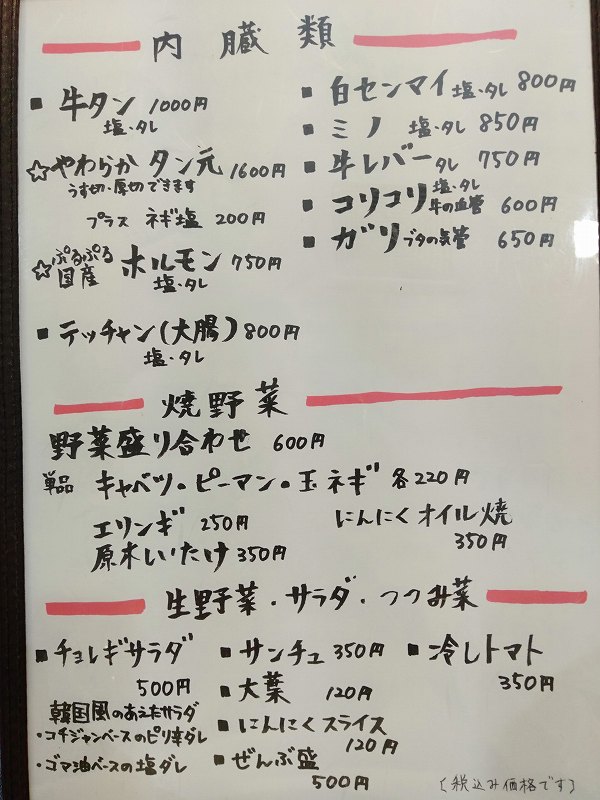 内臓類
■ 牛タン 1000円
塩・タレ
☆やわらか タン元 1600円
うす切・厚切できます
プラス ネギ塩 200円
☆ぷるぷる国産 ホルモン 750円
塩・タレ
■ テッチャン(大腸) 800円
塩・タレ
■ 白センマイ 塩・タレ 800円
■ ミノ 塩・タレ 850円
■ 牛レバー タレ 750円
■ コリコリ 塩・タレ 牛の血管 600円
■ ガリ ブタの気管 650円
焼野菜
野菜盛り合わせ 600円
単品 キャベツ・ピーマン・玉ネギ 各220円
エリンギ 250円
原木しいたけ 350円
にんにくオイル焼
350円
生野菜・サラダ・つつみ菜
■ チョレギサラダ
500円
韓国風のあえたサラダ
・コチジャンベースのピリ辛ダレ
・ゴマ油ベースの塩ダレ
■ サンチュ 350円
■ 大葉 120円
■ にんにくスライス
120円
■ ぜんぶ盛
500円
■ 冷しトマト
350円
(税込み価格です)